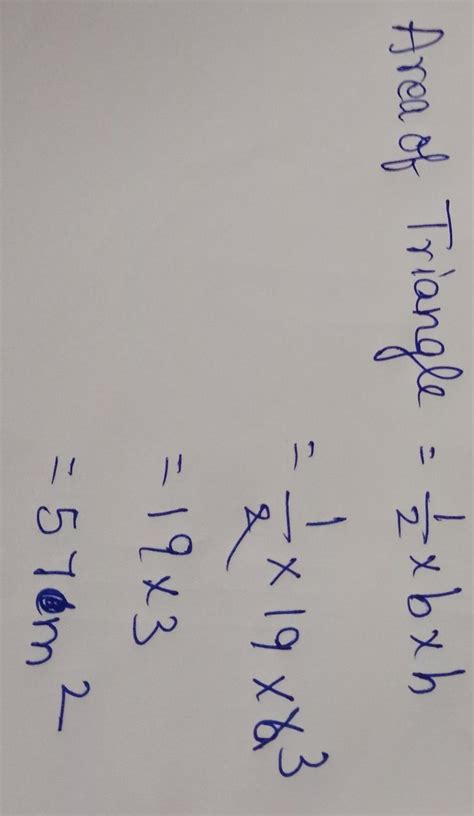 Area of Triangle = 1/2 x b x h
= 1/2 x 19 x 6 3
= 19 x 3
= 57 cm 2